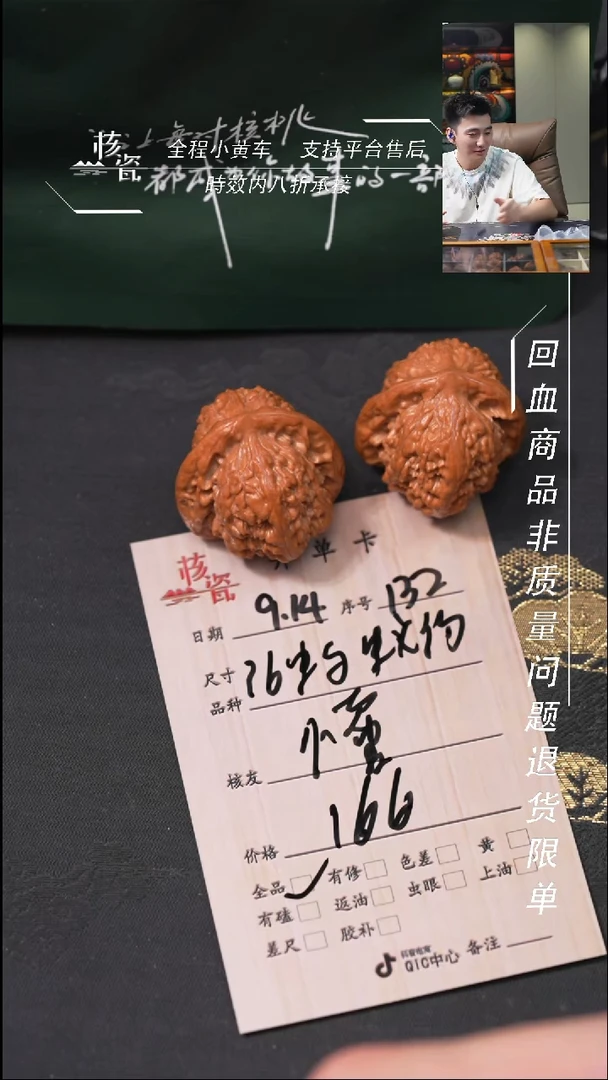 上每对核桃
核瓷
全程小黄车 支持平台售后
時效内八折承接
都成
的一部
回血商品非质量问题退货限单
核瓷
单卡
日期 9.14 序号 132
尺寸
品种
核友
价格 166
全品 有修 色差 黄
有磕 返油 虫眼 上油
差尺 胶补
抖音电商
QIC中心 备注